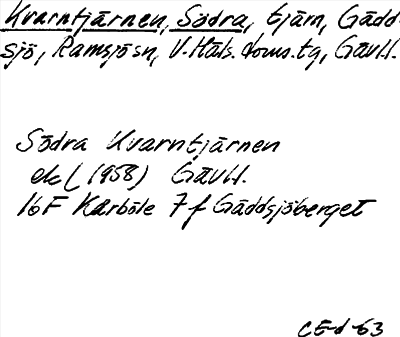 Kvarntjärnen, Södra, tjärn, Gädd-
sjö, Ramsjö sn, V. Häls. doms. tg, Gävl.
Södra Kvarntjärnen
ek (1958) Gävl.
16F Kårböle 7f Gäddsjöberget
CE-d -63